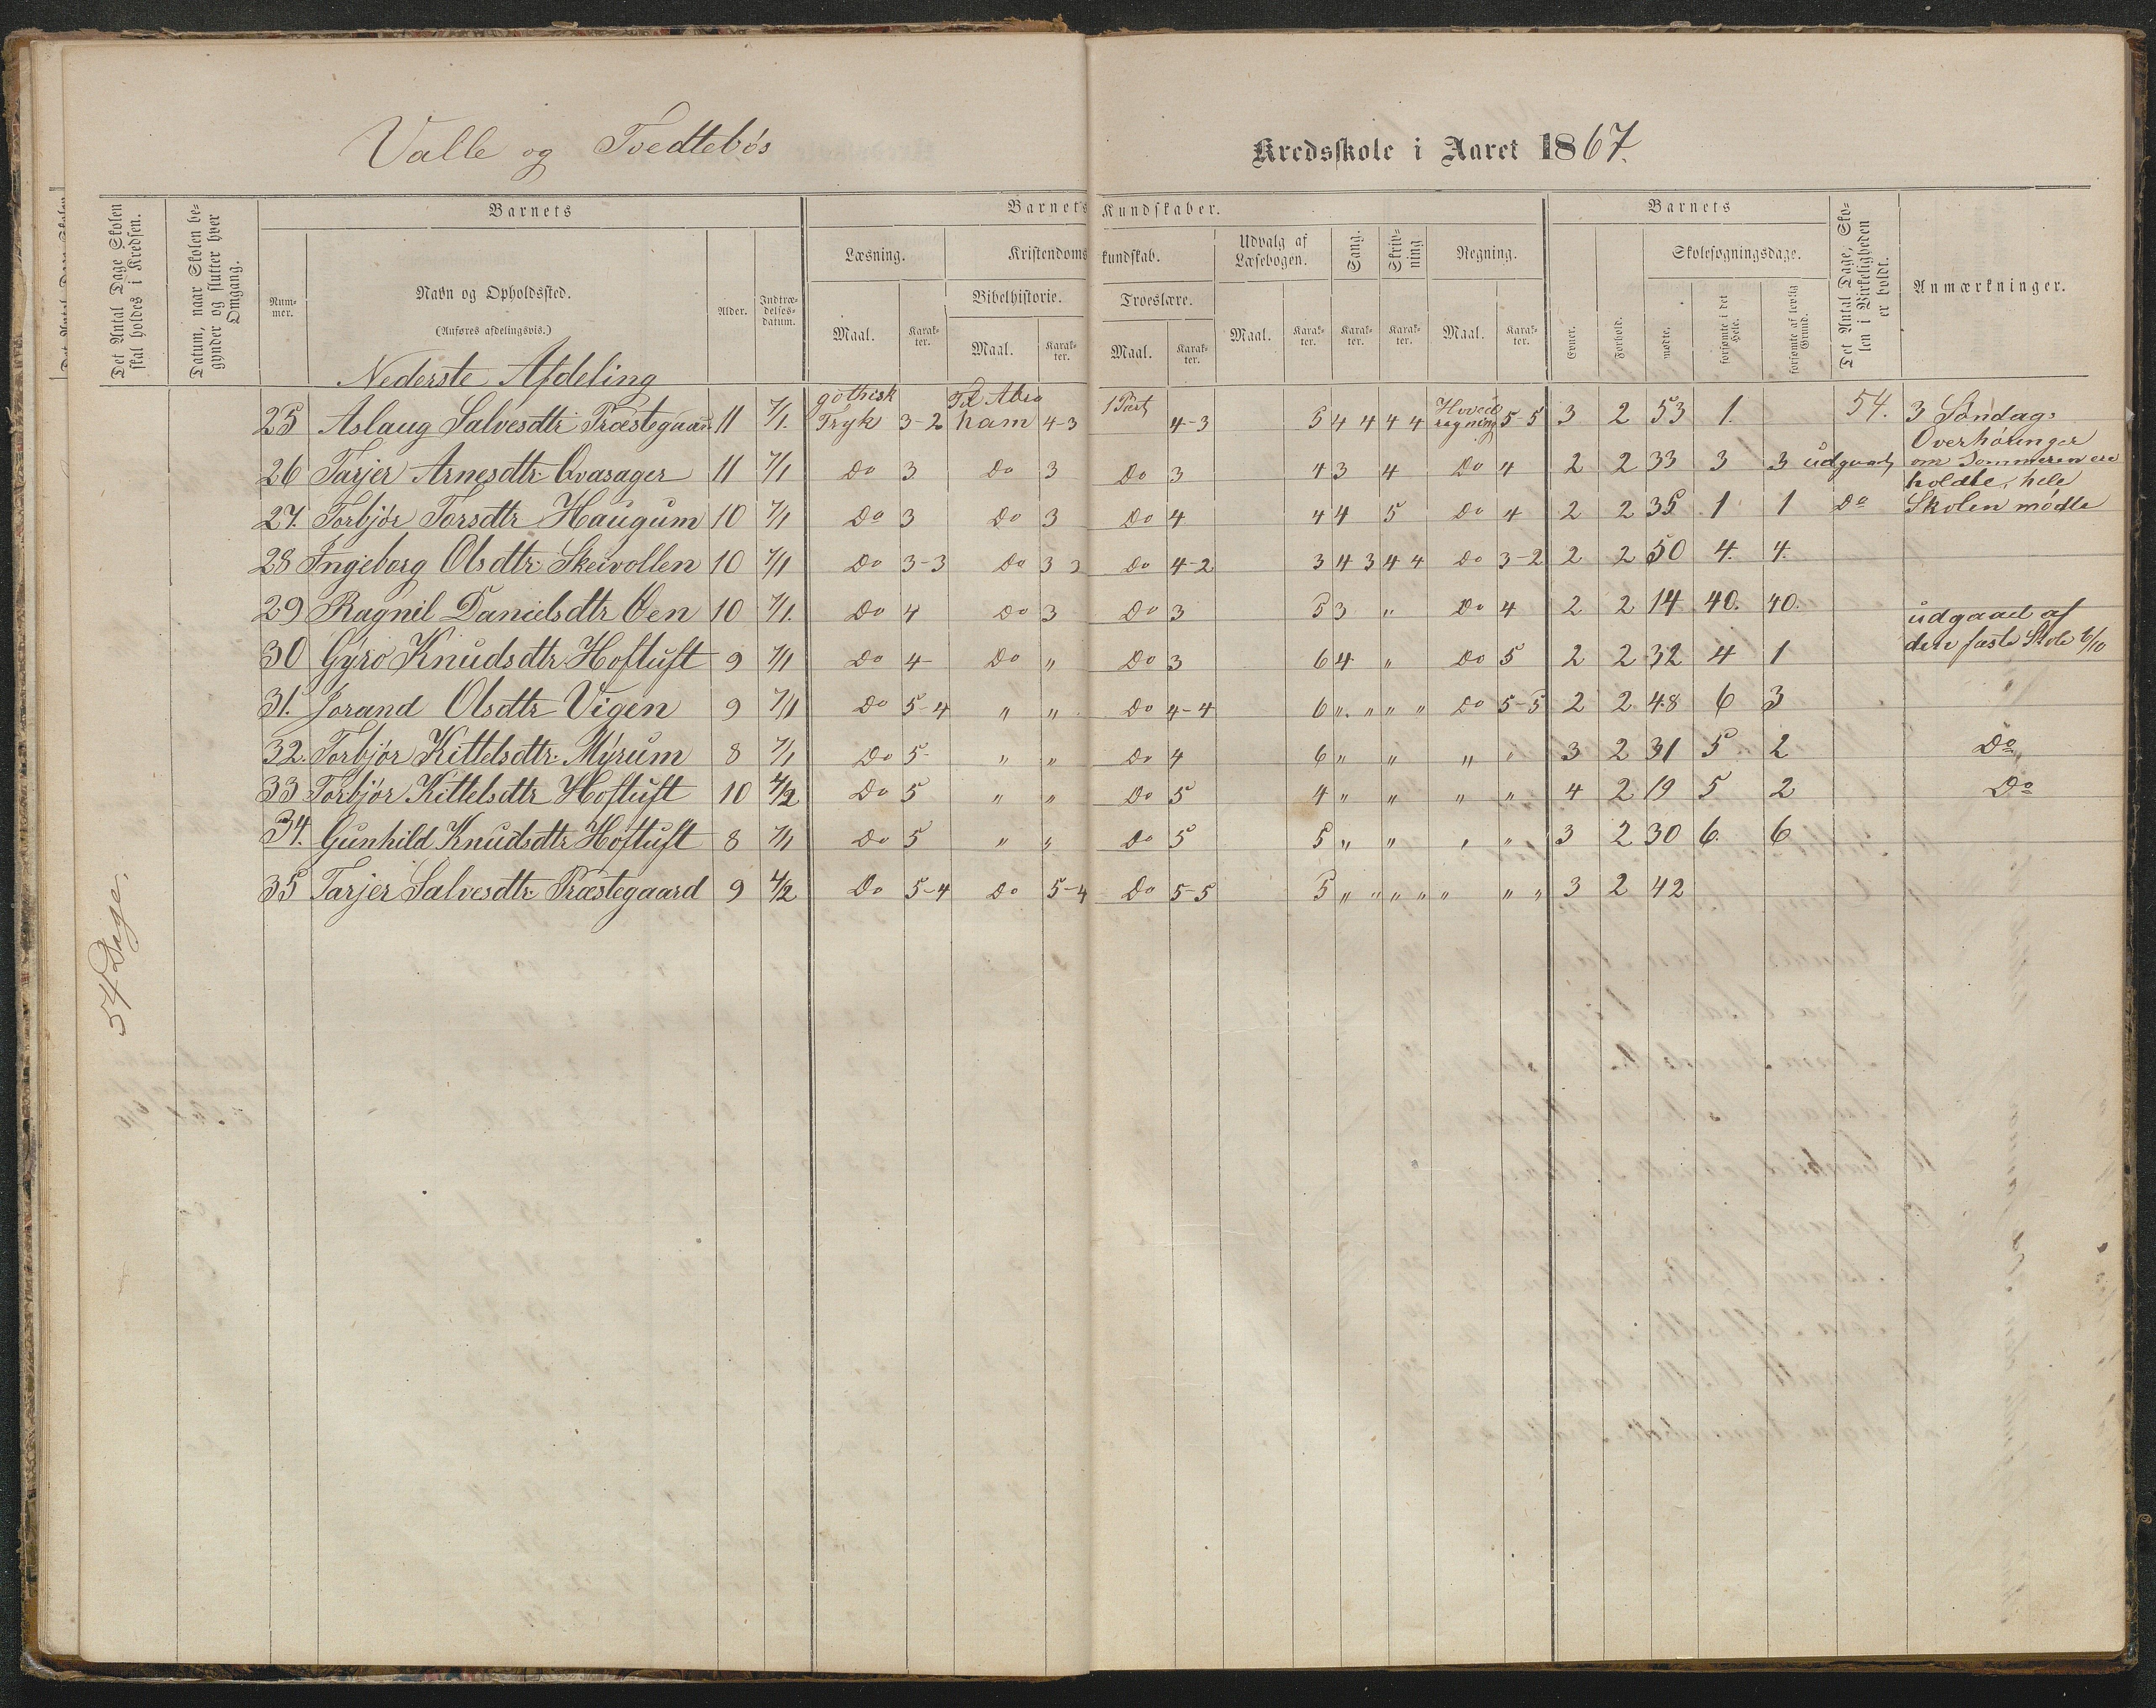 Valle og Tvedtebøs
Kredsskole i Aaret 1867.
Det Antal Dage Skolen skal holdes i Kredsen.
Datum, naar Skolen begynder og slutter hver Omgang.
Barnets
Nummer.
Navn og Opholdssted.
(Anføres afdelingsvis.)
Alder.
Indtrædelsesdatum.
Barnets Kundskaber.
Læsning.
Kristendomskundskab.
Udvalg af Læsebogen.
Sang.
Skrivning
Regning.
Bibelhistorie.
Troeslære.
Maal. Karakter. Maal. Karakter. Maal. Karakter. Maal. Karakter. Karakter. Karakter. Maal. Karakter.
Barnets
Evner.
Forhold.
Skolesøgningsdage.
mødte.
forsømte i det Hele.
forsømte af lovlig Grund.
Det Antal Dage, Skolen i Virkeligheden er holdt.
Anmærkninger.
54 Dage.
Nederste Afdeling
25 Aslaug Salvesdtr Præstegaar 11 7/1. gothisk Tryk 3-2 Til Abraham 4-3 1 Part 4-3 5 4 4 4 4 Hovedregning 5-5 3 2 53 1. 54. 3 Søndags
Overhøringer
26 Tarjer Arnesdtr Kvasager 11 7/1 Do 3 Do 3 Do 3 4 3 4 Do 4 2 2 33 3 3 udgaaet om Sommeren ere
holdte, hele
27. Torbjør Torsdtr Haugum 10 7/1 Do 3 Do 3 Do 4 4 4 5 Do 4 2 2 35 1 1 Do Skolen mødte
28 Ingeborg Olsdtr Skeivollen 10 7/1 Do 3-3 Do 3 2 Do 4-2 3 4 3 4 4 Do 3-2 2 2 50 4. 4.
29 Ragnil Danielsdtr Øen 10 7/1. Do 4 Do 3 Do 3 5 3 " Do 4 2 2 14 40. 40. udgaaet af
30 Gyro Knudsdtr Hoftuft 9 7/1 Do 4 Do " Do 3 6 4 " Do 5 2 2 32 4 1 den faste Skole 6/10
31. Jorand Olsdtr Vigen 9 7/1 Do 5-4 " " Do 4-4 6 " " " " Do 5-5 2 2 48 6 3
32. Torbjør Kittelsdtr Myrum 8 7/1 Do 5 " " Do 4 6 " " " " 3 2 31 5 2 Do
33 Torbjør Kittelsdtr Hoftuft 10 4/2 Do 5 " " Do 5 4 " " " " 4 2 19 5 2 Do
34. Gunhild Knudsdtr Hoftuft 8 7/1 Do 5 " " Do 5 5 " " " " 3 2 30 6. 6
35 Tarjer Salvesdtr Præstegaard 9 4/2 Do 5-4 Do 5-4 Do 5-5 5 " " " " " " " 3 2 42